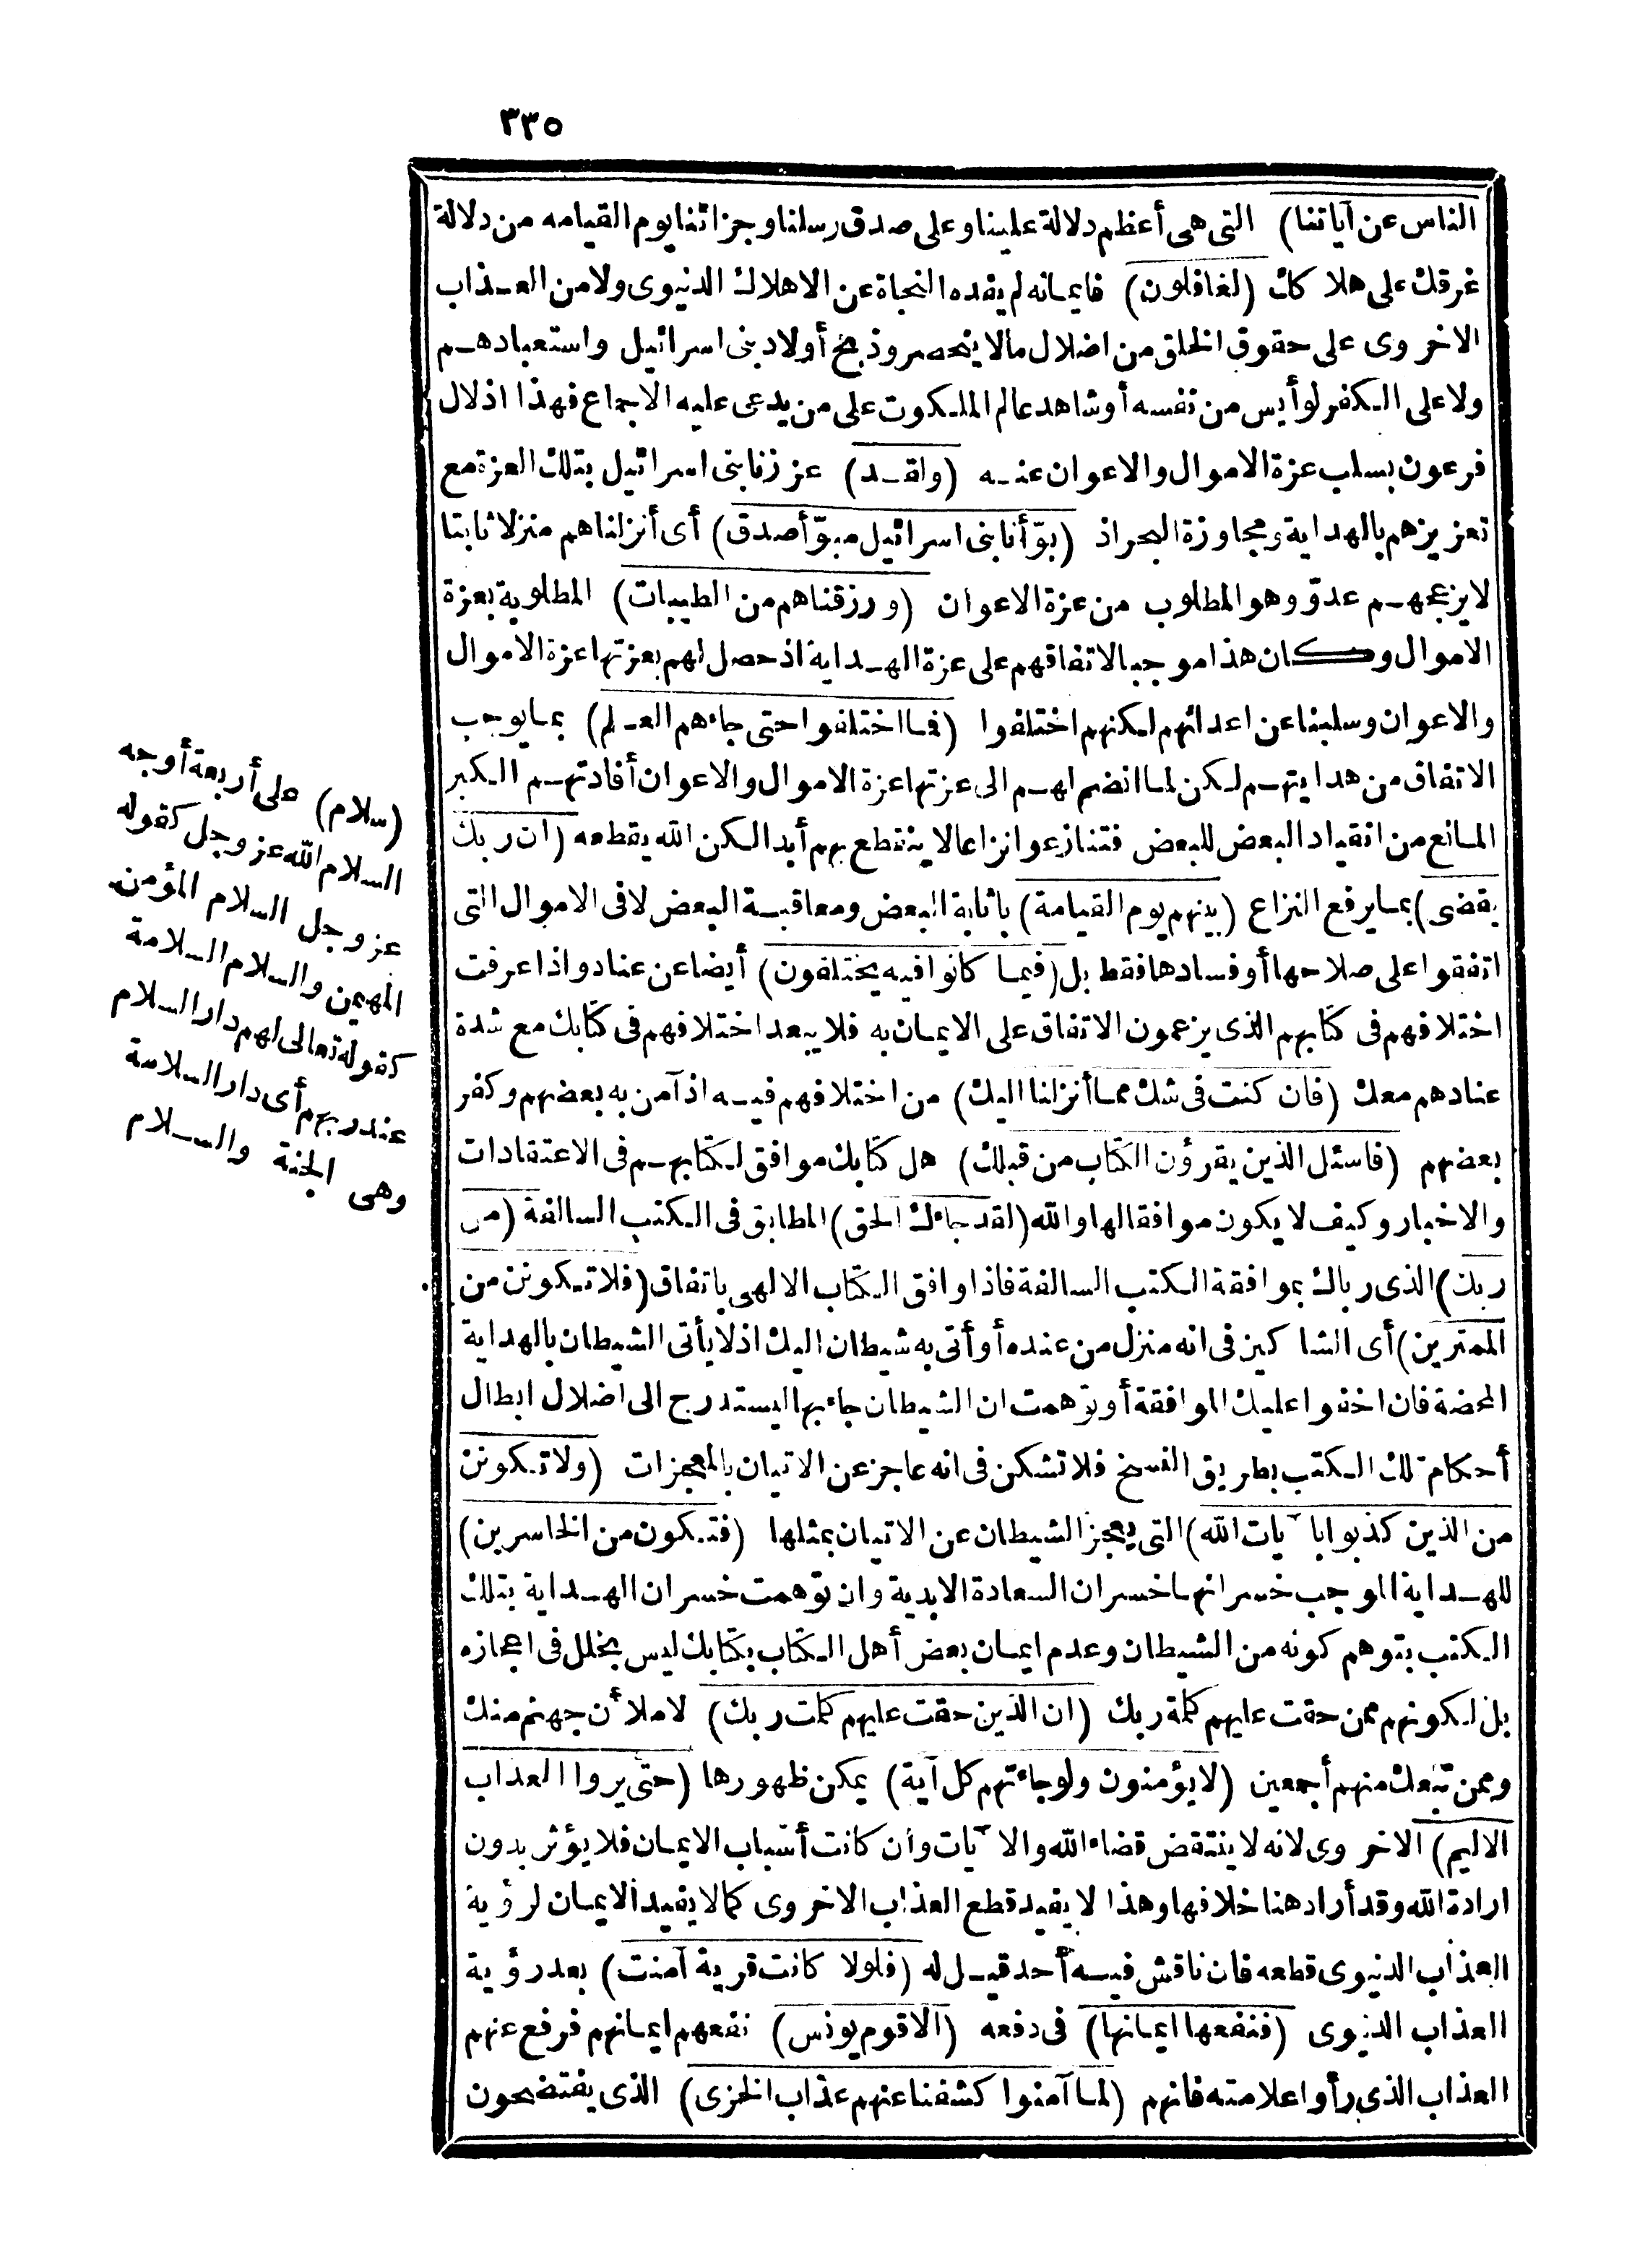 ٣٣٥
الناس عن آياتنا) التى هى أعظم دلالة علينا وعلى صدق رسلنا وجزائنا يوم القيامه من دلالة
غرقك على هلاكك (لغافلون) فايمانه لم يفده النجاة عن الاهلاك الدنيوى ولا من العذاب
الاخروى على حقوق الخلق من اضلال ما لا ينحصر وذبح أولاد بنى اسرائيل واستعبادهم
ولا على الكفر لو أيس من نفسه أو شاهد عالم الملكوت على من يدعى عليه الاجماع فهذا اذلال
فرعون بسلب عزة الاموال والاعوان عنه (ولقد) عززنا بنى اسرائيل بتلك العزة مع
تعزيزهم بالهداية ومجاوزة البحر اذ (بوّأنا بنى اسرائيل مبوّأ صدق) أى أنزلناهم منزلا ثابتا
لا يزعجهم عدوّ وهو المطلوب من عزة الاعوان (ورزقناهم من الطيبات) المطلوبة بعزة
الاموال وكان هذا موجبا لاتفاقهم على عزة الهداية اذ حصل لهم بعزتها عزة الاموال
والاعوان وسلبنا عن اعدائهم لكنهم اختلفوا (فما اختلفوا حتى جاءهم العلم) بما يوجب
الاتفاق من هدايتهم لكن لما انضم لهم الى عزتها عزة الاموال والاعوان أفادتهم الكبر
المانع من انقياد البعض للبعض فتنازعوا نزاعا لا ينقطع بهم أبدا لكن الله يقطعه (ان ربك
يقضى) بما يرفع النزاع (بينهم يوم القيامة) باثابة البعض ومعاقبة البعض لا فى الاموال التى
اتفقوا على صلاحها أو فسادها فقط بل (فيما كانوا فيه يختلفون) أيضا عن عناد واذا عرفت
اختلافهم فى كتابهم الذى يزعمون الاتفاق على الايمان به فلا يبعد اختلافهم فى كتابك مع شدة
عنادهم معك (فان كنت فى شك مما أنزلنا اليك) من اختلافهم فيه اذ آمن به بعضهم وكفر
بعضهم (فاسئل الذين يقرؤن الكتاب من قبلك) هل كتابك موافق لكتابهم فى الاعتقادات
والاخبار وكيف لا يكون موافقا لها والله (لقد جاءك الحق) المطابق فى الكتب السالفة (من
ربك) الذى رباك بموافقة الكتب السالفة فاذا وافق الكتاب الالهى باتفاق (فلا تكونن من
الممترين) أى الشاكين فى انه منزل من عنده أو أتى به شيطان اليك اذ لا يأتى الشيطان بالهداية
المحضة فان اخفوا عليك الموافقة أو توّهمت ان الشيطان جاء بها ليستدرج الى اضلال ابطال
أحكام تلك الكتب بطريق الفسخ فلا تشكن فى انه عاجز عن الاتيان بالمعجزات (ولا تكونن
من الذين كذبوا بآيات الله) التى يعجز الشيطان عن الاتيان بمثلها (فتكون من الخاسرين)
للهداية الموجب خسرانها خسران السعادة الابدية وان توّهمت خسران الهداية بتلك
الكتب بتوهم كونه من الشيطان وعدم ايمان بعض أهل الكتاب بكتابك ليس بخلل فى اعجازه
بل لكونهم ممن حقت عليهم كلمة ربك (ان الذين حقت عليهم كلمت ربك) لاملأن جهنم منك
وممن تبعك منهم أجمعين (لا يؤمنون ولو جاءتهم كل آية) يمكن ظهورها (حتى يروا العذاب
الاليم) الاخروى لانه لا ينتقض قضاء الله والآيات وان كانت أسباب الايمان فلا يؤثر بدون
ارادة الله وقد أراد هنا خلافها وهذا لا يفيد قطع العذاب الاخروى كما لا يفيد الايمان لرؤية
العذاب الدنيوى قطعه فان ناقش فيه أحد قيل له (فلولا كانت قرية آمنت) بعد رؤية
العذاب الدنيوى (فنفعها ايمانها) فى دفعه (الا قوم يونس) نفعهم ايمانهم فرفع عنهم
العذاب الذى رأوا علامته فانهم (لما آمنوا كشفنا عنهم عذاب الخزى) الذى يفتضحون
(سلام) على أربعة أوجه
السلام الله عز وجل كقوله
عز وجل السلام المؤمن
المهيمن والسلام السلامة
كقوله تعالى لهم دار السلام
عند ربهم أى دار السلامة
وهى الجنة والسلام